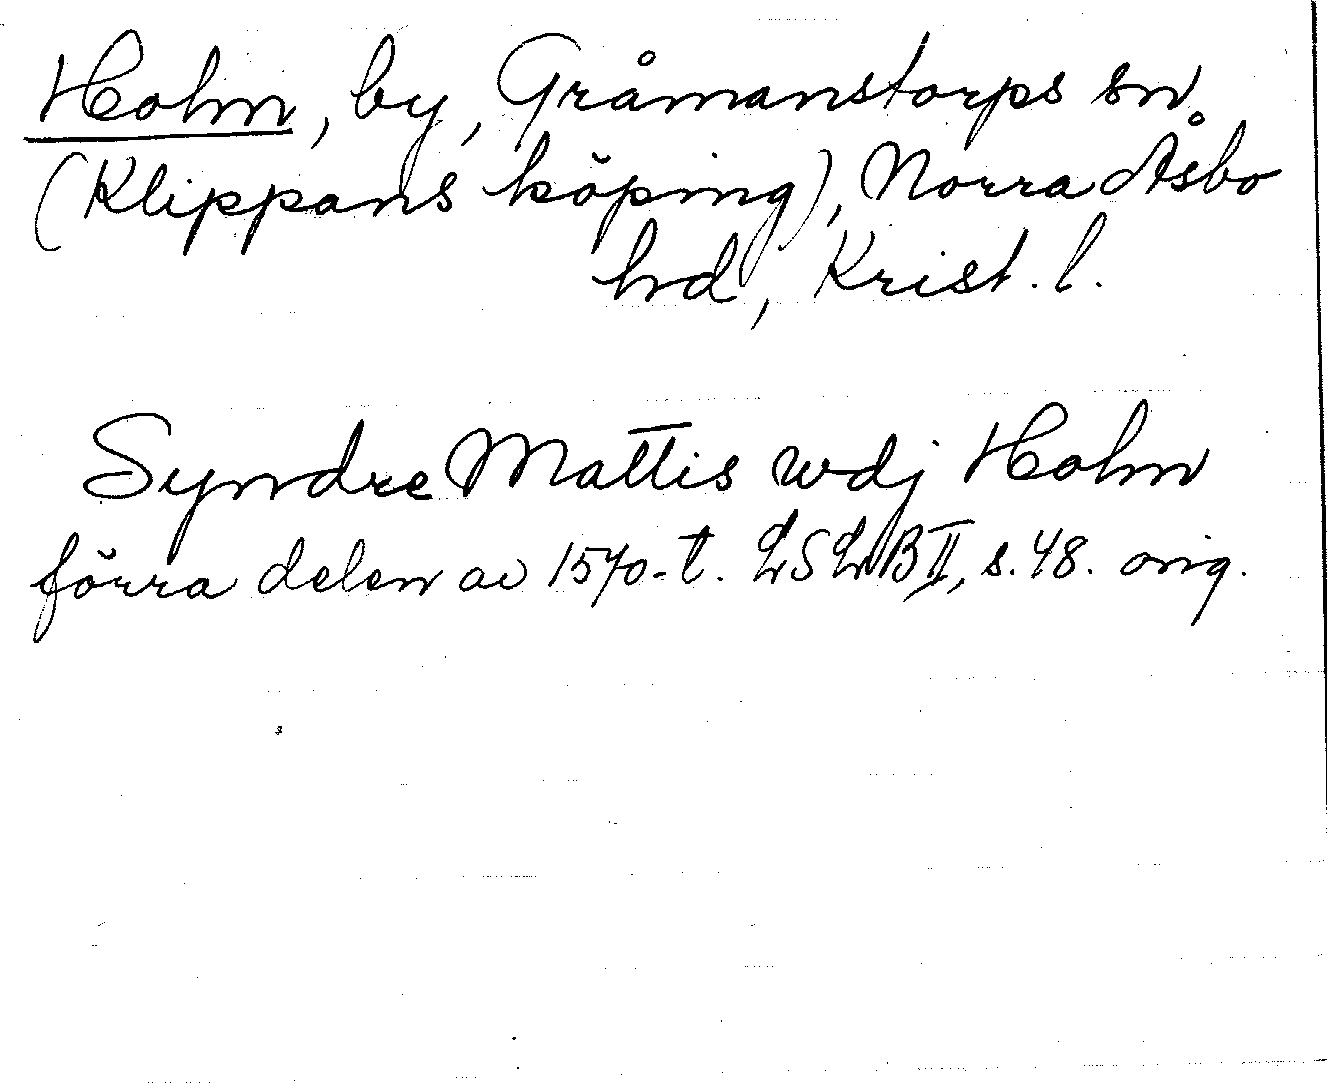 Holm, by, Gråmanstorps sn
(Klippans köping), Norra Åsbo
hd, Krist. l.
Syndre Mattis wdj Holm
förra delen av 1570-t. LSLB II, s. 48. orig.